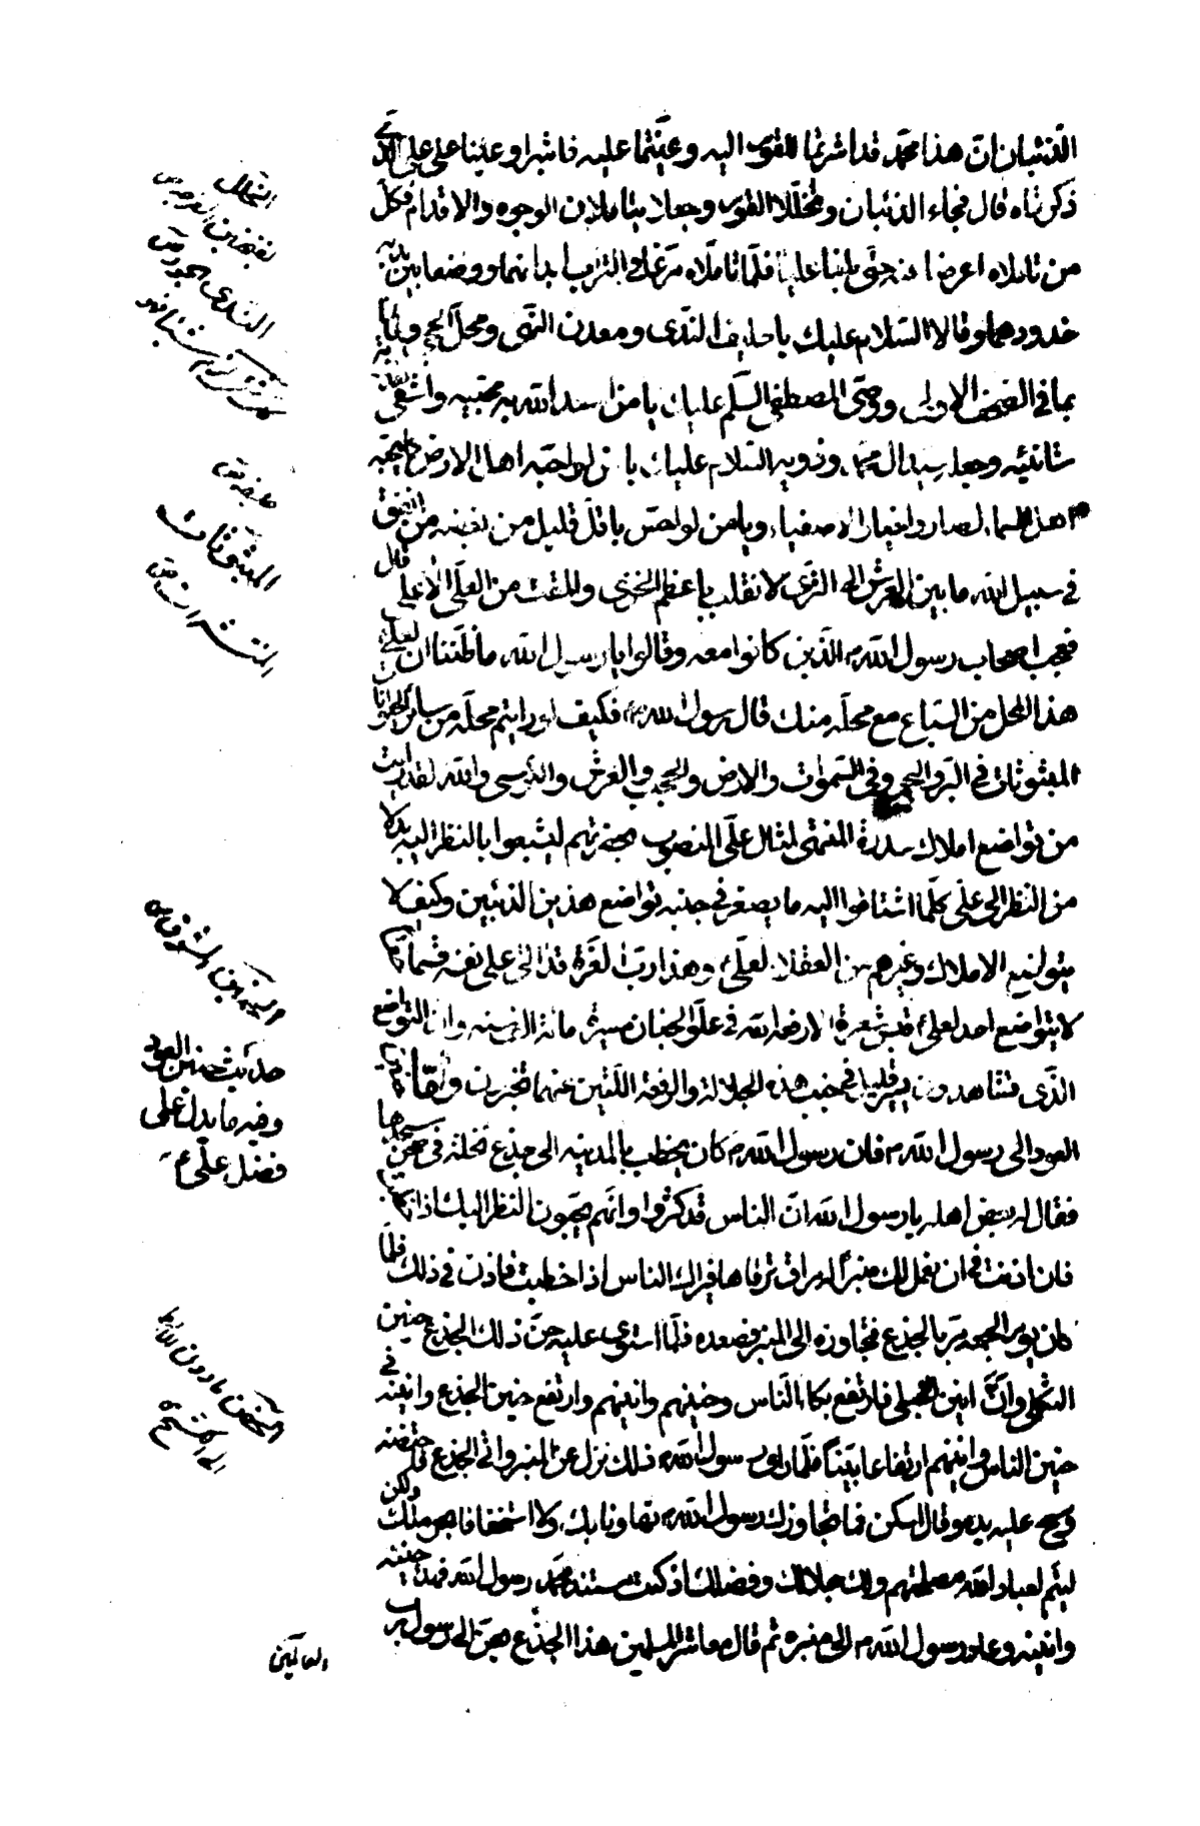 الذئبان ان هذا محمد قد اشرتما للقوم اليه وعينتما عليه فاشيرا وعينا على علي الذي
ذكرتماه قال فجاء الذئبان وتخللا القوم وجعلا يتاملان الوجوه والاقدام فكل
من تاملاه اعرضا عنه حتى بلغا عليا فلما تاملاه مرغا في التراب ابدانهما ووضعا بين يديه
خدودهما وقالا السلام عليك يا حليف الندى ومعدن النهى ومحل الحجى وعالما
بما في الصحف الاولى ووصي المصطفى السلام عليك يا من اسعد الله به محبيه واشقى بعداوته
شانئيه وجعله سيد آل محمد وذويه السلام عليك يا من لو احبه اهل الارض كما يحبه
اهل السماء لصاروا خيار الاصفياء ويا من لو احس باقل قليل من بغضه من انفق
في سبيل الله ما بين العرش الى الثرى لانقلب باعظم الخزي والمقت من العلي الاعلى قال
فعجب اصحاب رسول الله الذين كانوا معه وقالوا يا رسول الله ما ظننا ان لعلي
هذا المحل من السباع مع محله منك قال رسول الله فكيف لو رايتم محله من سائر الحيوانات
المبثوثات في البر والبحر وفي السموات والارض والحجب والعرش والكرسي والله لقد رايت
من تواضع املاك سدرة المنتهى لمثال علي المنصوب بحضرتهم ليشبعوا بالنظر اليه بدلا
من النظر الى علي كلما اشتاقوا اليه ما يصغر في جنبه تواضع هذين الذئبين وكيف لا
يتواضع الاملاك وغيرهم من العقلاء لعلي وهذا رب العزة قد آلى على نفسه قسما
لا يتواضع احد لعلي قدر شعرة الا رفعه الله في علو الجنان مسيرة مائة الف سنة وان التواضع
الذي تشاهدون يسير قليل في جنب هذه الجلالة والرفعة اللتين عنهما تخبرون واما حنين
العود الى رسول الله فان رسول الله كان يخطب بالمدينة الى جذع نخلة في صحن مسجدها
فقال له بعض اهله يا رسول الله ان الناس قد كثروا وانهم يحبون النظر اليك اذا خطبت
فان اذنت في ان نعمل لك منبرا له مراق ترقاها فيراك الناس اذا خطبت فاذن في ذلك فلما
كان يوم الجمعة مر بالجذع فتجاوزه الى المنبر فصعده فلما استوى عليه حن ذلك الجذع حنين
الثكلى وان انين الحبلى فارتفع بكاء الناس وحنينهم وانينهم وارتفع حنين الجذع وانينه في
حنين الناس وانينهم ارتفاعا بينا فلما راى رسول الله ذلك نزل عن المنبر واتى الجذع فاحتضنه
ومسح عليه يده وقال اسكن فما تجاوزك رسول الله تهاونا بك ولا استخفافا بحرمتك ولكن
ليتم لعباد الله مصلحتهم ولك جلالك وفضلك اذ كنت مستند محمد رسول الله فهدأ حنينه
وانينه وعاد رسول الله الى منبره ثم قال معاشر المسلمين هذا الجذع يحن الى رسول رب
العالمين
التخلل
الندى الجود
المبثوثات
الحنين الشوق
حديث حنين العود
وفيه ما يدل على
فضل علي ع